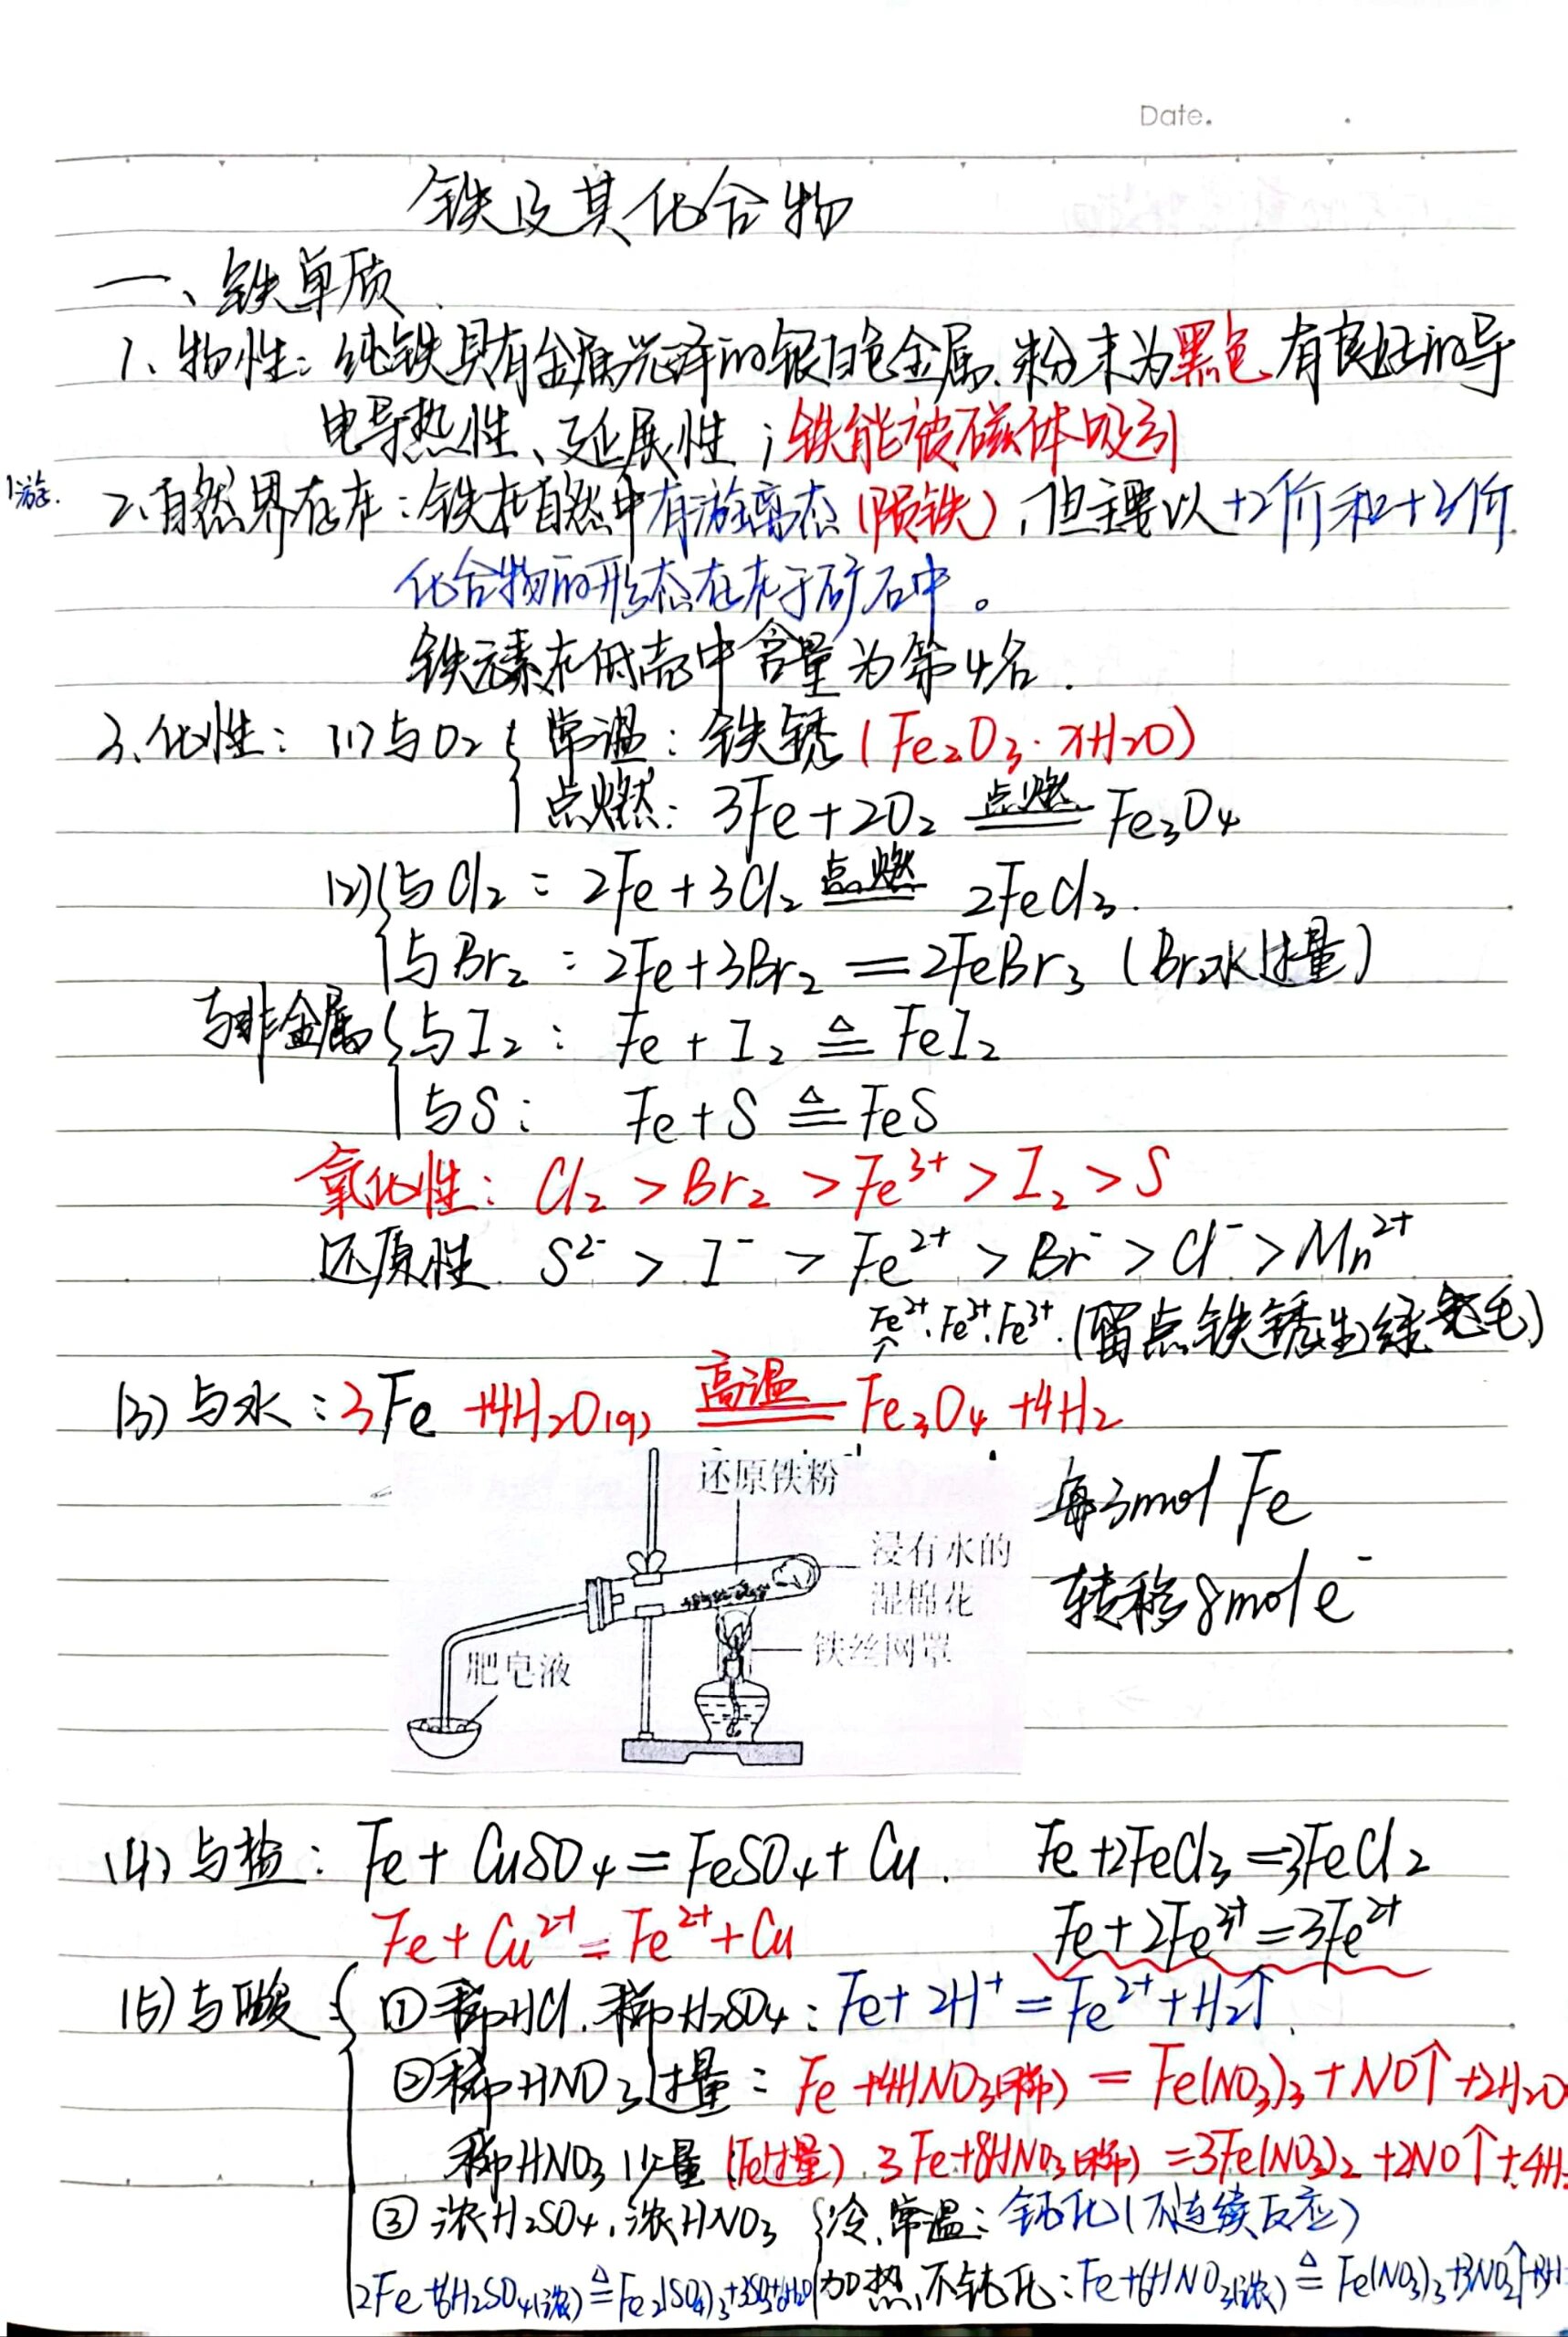 Date.
铁及其化合物
一、铁单质
1、物性：纯铁具有金属光泽的银白色金属.粉末为黑色 有良好的导
电导热性、延展性；铁能被磁体吸引
2、自然界存在：铁在自然中有游离态(陨铁)，但主要以+2价和+3价
化合物的形态存在于矿石中。
铁元素在地壳中含量为第4名.
3、化性：(1)与O₂ { 常温：铁锈(Fe₂O₃·xH₂O)
点燃：3Fe+2O₂ 点燃 Fe₃O₄
(2) 与Cl₂：2Fe+3Cl₂ 点燃 2FeCl₃.
与Br₂：2Fe+3Br₂ = 2FeBr₃ (Br₂水过量)
与非金属 { 与I₂：Fe+I₂ ≜ FeI₂
与S：Fe+S ≜ FeS
氧化性：Cl₂ > Br₂ > Fe³⁺ > I₂ > S
还原性 S²⁻ > I⁻ > Fe²⁺ > Br⁻ > Cl⁻ > Mn²⁺
(留点铁锈生绿毛)
(3) 与水：3Fe +4H₂O(g) 高温 Fe₃O₄ +4H₂
还原铁粉
每3mol Fe
浸有水的
湿棉花
转移8mol e⁻
铁丝网罩
肥皂液
(4) 与盐：Fe+CuSO₄=FeSO₄+Cu. Fe+2FeCl₃=3FeCl₂
Fe+Cu²⁺=Fe²⁺+Cu Fe+2Fe³⁺=3Fe²⁺
(5) 与酸 { ①稀HCl.稀H₂SO₄：Fe+2H⁺=Fe²⁺+H₂↑.
②稀HNO₃过量：Fe+4HNO₃(稀) = Fe(NO₃)₃+NO↑+2H₂O
稀HNO₃少量(Fe过量) 3Fe+8HNO₃(稀) =3Fe(NO₃)₂+2NO↑+4H
③浓H₂SO₄.浓HNO₃ { 冷、常温：钝化(不连续反应)
2Fe+6H₂SO₄(浓) ≜ Fe₂(SO₄)₃+3SO₂↑+6H₂O 加热,不钝化：Fe+6HNO₃(浓) ≜ Fe(NO₃)₃+3NO₂↑+3H